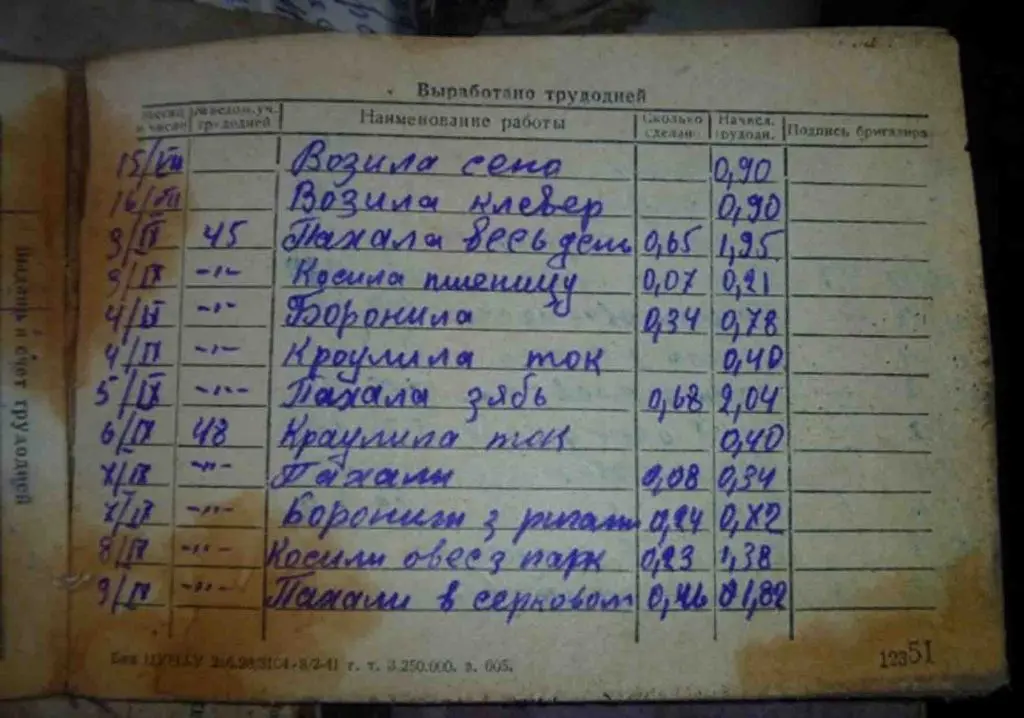 Выработано трудодней
Месяц и число № ведом. уч. трудодней Наименование работы Сколько сделано Начисл. трудодн. Подпись бригадира
15/VIII Возила сено 0,90
16/VIII Возила клевер 0,90
3/IX 45 Пахала весь день 0,65 1,95
3/IX -"- Косила пшеницу 0,07 0,21
4/IX -"- Боронила 0,34 0,78
4/IX -"- Кроулила ток 0,40
5/IX -"- Пахала зябь 0,68 2,04
6/IX 48 Краулила ток 0,40
7/IX -"- Пахали 0,08 0,34
7/IX -"- Боронили з ригами 0,24 0,72
8/IX -"- Косили овес з парк 0,23 1,38
9/IX -"- Пахали в серковом 0,46 1,82
т. т. 3.250.000. з. 605.
12351
счет трудодней